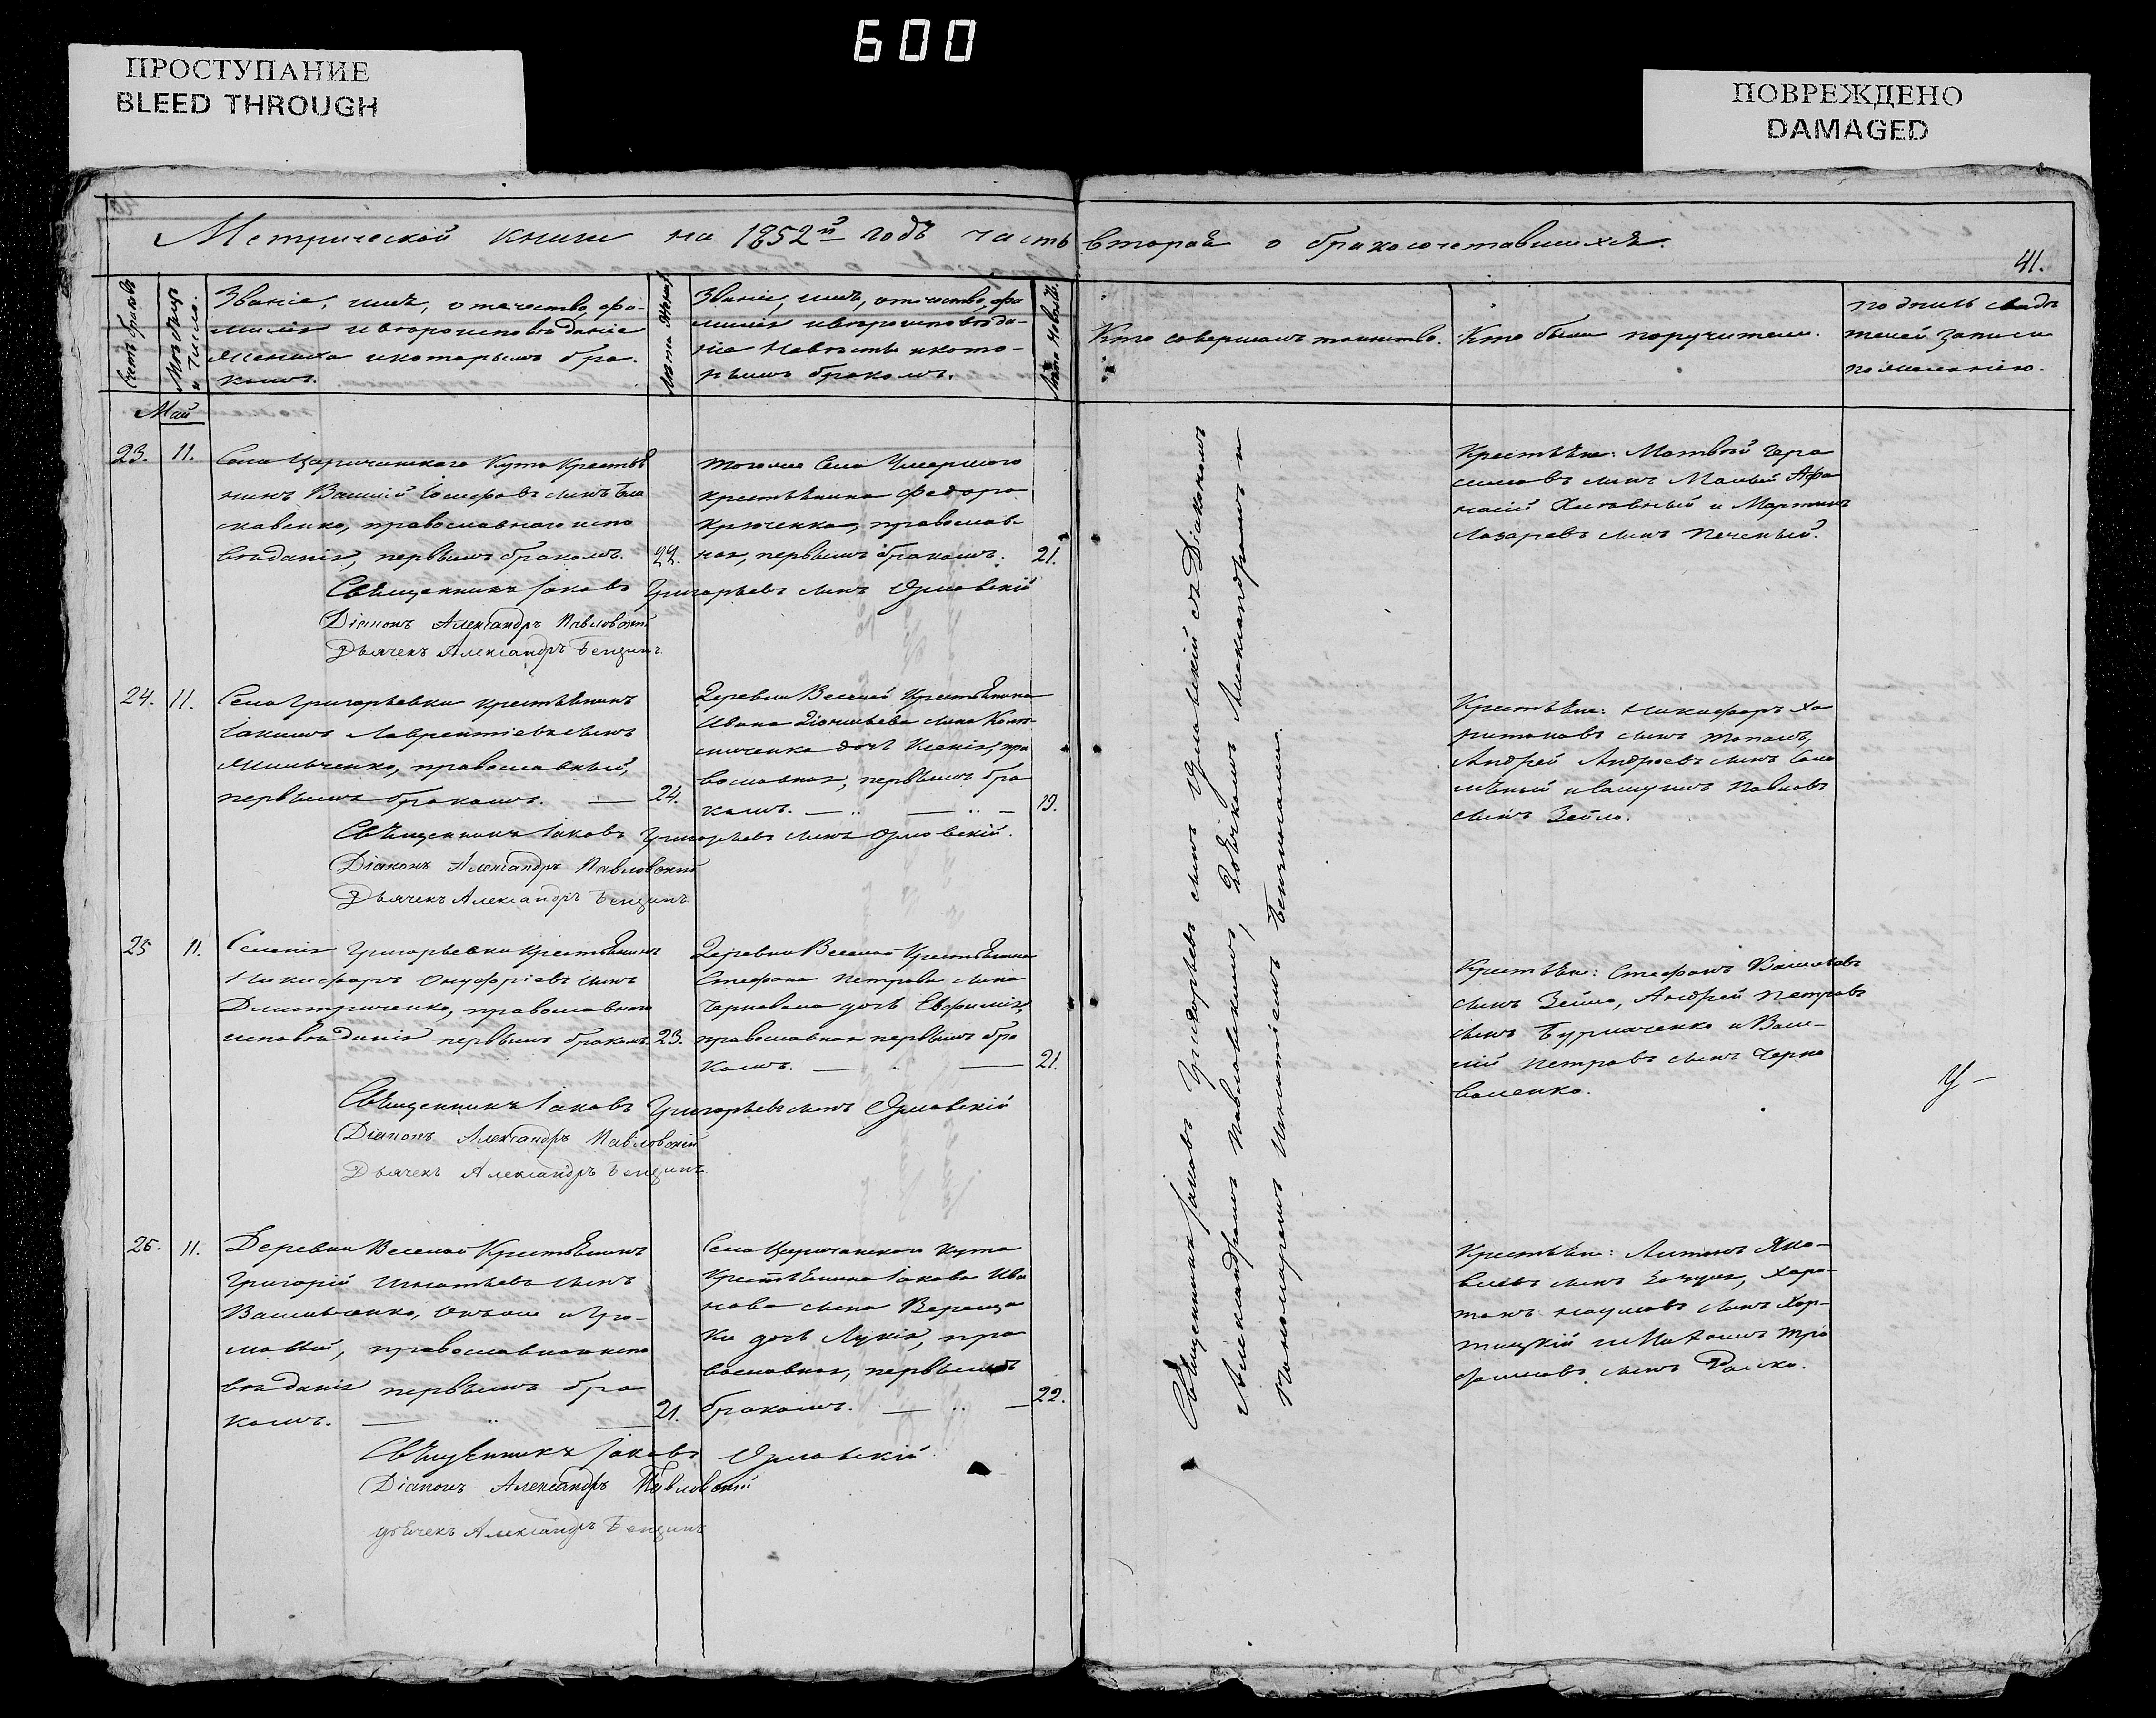 600
ПРОСТУПАНИЕ
BLEED THROUGH
ПОВРЕЖДЕНО
DAMAGED
Метрической книги на 1852й годъ часть вторая о бракосочетавшихся.
41.
Счетъ браковъ
Мѣсяцъ и Число.
Званіе, имя, отечество, фа-
милія и вѣроисповѣданіе
Жениха и которымъ бра-
комъ.
Лѣта Жениха
Званіе, имя, отечество, фа
милія и вѣроисповѣда-
ніе Невѣсты и кото-
рымъ бракомъ.
Лѣта Невѣсты.
Кто совершалъ таинство.
Кто были поручители.
подпись свидѣ
телей записи
по желанію.
Май
23. 11.
Села Царичанскаго Кута Крестья
нинъ Василій Іосифовъ сынъ
славенко, православнаго испо
вѣданія, первымъ бракомъ. 22.
тогоже Села Умершаго
крестьянина Федора
Крюченка, православ-
ная, первымъ бракомъ. 21.
Крестьяне: Матвѣй Гера
симовъ сынъ Малый Афа
насій и Мартинъ
Лазаревъ сынъ Печеный.
Священникъ Іаковъ Григорьевъ сынъ Орловскій
Діаконъ Александръ Павловскій
Дьячекъ Александръ
24. 11.
Села Григорьевки крестьянинъ
Іакимъ Лаврентіевъ сынъ
Мильченко, православный,
первымъ бракомъ. — 24.
Деревни Веселой Крестьянина
Ивана Діонисьева сына
дочь Ксенія, пра
вославная, первымъ бра
комъ. — 19.
Крестьяне: Никифоръ Ха
ритоновъ сынъ Топалъ,
Андрей Андреевъ сынъ
и Павловъ
сынъ Зейло.
Священникъ Іаковъ Григорьевъ сынъ Орловскій.
Діаконъ Александръ Павловскій
Дьячекъ Александръ
25 11.
Селенія Григорьевки Крестьянинъ
Никифоръ Онуфріевъ сынъ
Дмитриченко, православнаго
исповѣданія первымъ бракомъ. 23.
Деревни Веселой Крестьянина
Стефана Петрова сына
Черновола дочь Евфимія,
православная первымъ бра
комъ. — 21.
Крестьяне: Стефанъ Васильевъ
сынъ Зейло, Андрей Петровъ
сынъ Бурлаченко и Васи-
лій Петровъ сынъ Черно
воленко.
Священникъ Іаковъ Григорьевъ сынъ Орловскій
Діаконъ Александръ Павловскій
Дьячекъ Александръ
26. 11.
Деревни Веселой Крестьянинъ
Григорій Игнатьевъ сынъ
Васильченко,
православнаго испо
вѣданія первымъ бра
комъ. — 21.
Села Царичанскаго Кута
Крестьянина Іакова Ива
нова сына Вереща
ки дочь Лукія, пра
вославная, первымъ
бракомъ. — 22.
Крестьяне: Антонъ Яко-
влевъ сынъ Харо-
тонъ Наумовъ сынъ Хор-
тицкій и Тро
фимовъ сынъ
Священникъ Іаковъ Орловскій
Діаконъ Александръ Павловскій
дьячекъ Александръ
Священникъ Іаковъ Григорьевъ сынъ Орловскій съ Діакономъ
Александромъ Павловскимъ, Дьячкомъ Александромъ и
Пономаремъ Игнатіемъ